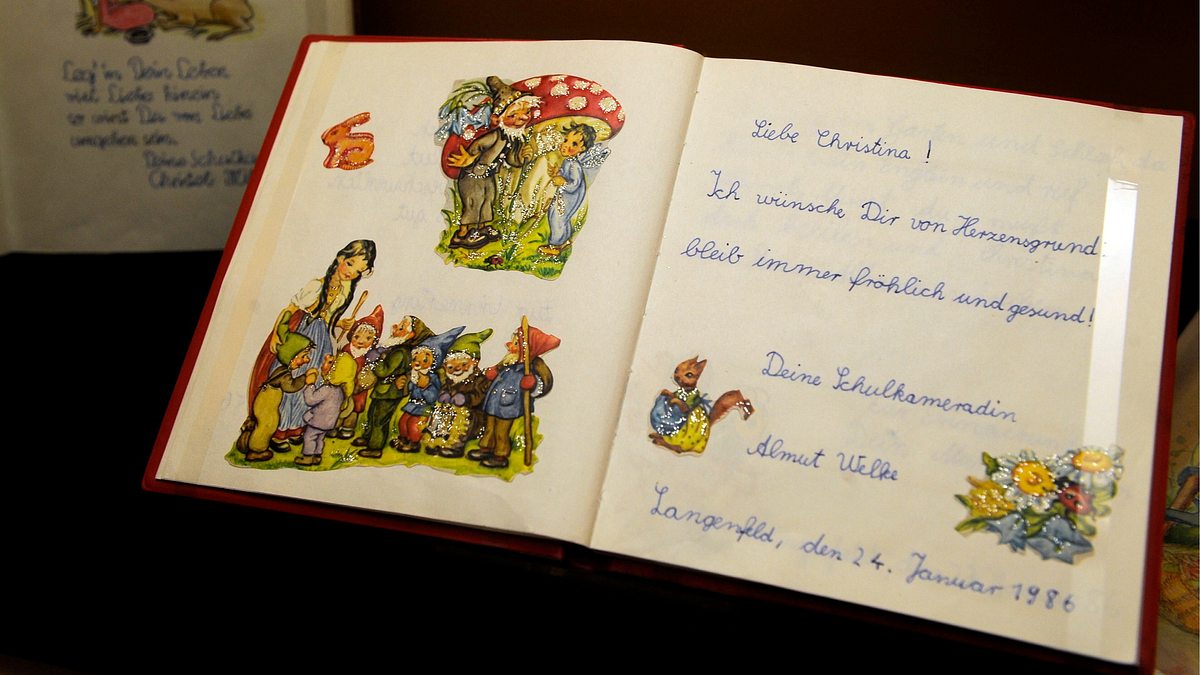 Leg' in Dein Leben
viel Liebe hinein
so wirst Du von Liebe
umgeben sein.
Deine
Christel
Liebe Christina!
Ich wünsche Dir von Herzensgrund:
bleib immer fröhlich und gesund!
Deine Schulkameradin
Almut Welke
Langenfeld, den 24. Januar 1986